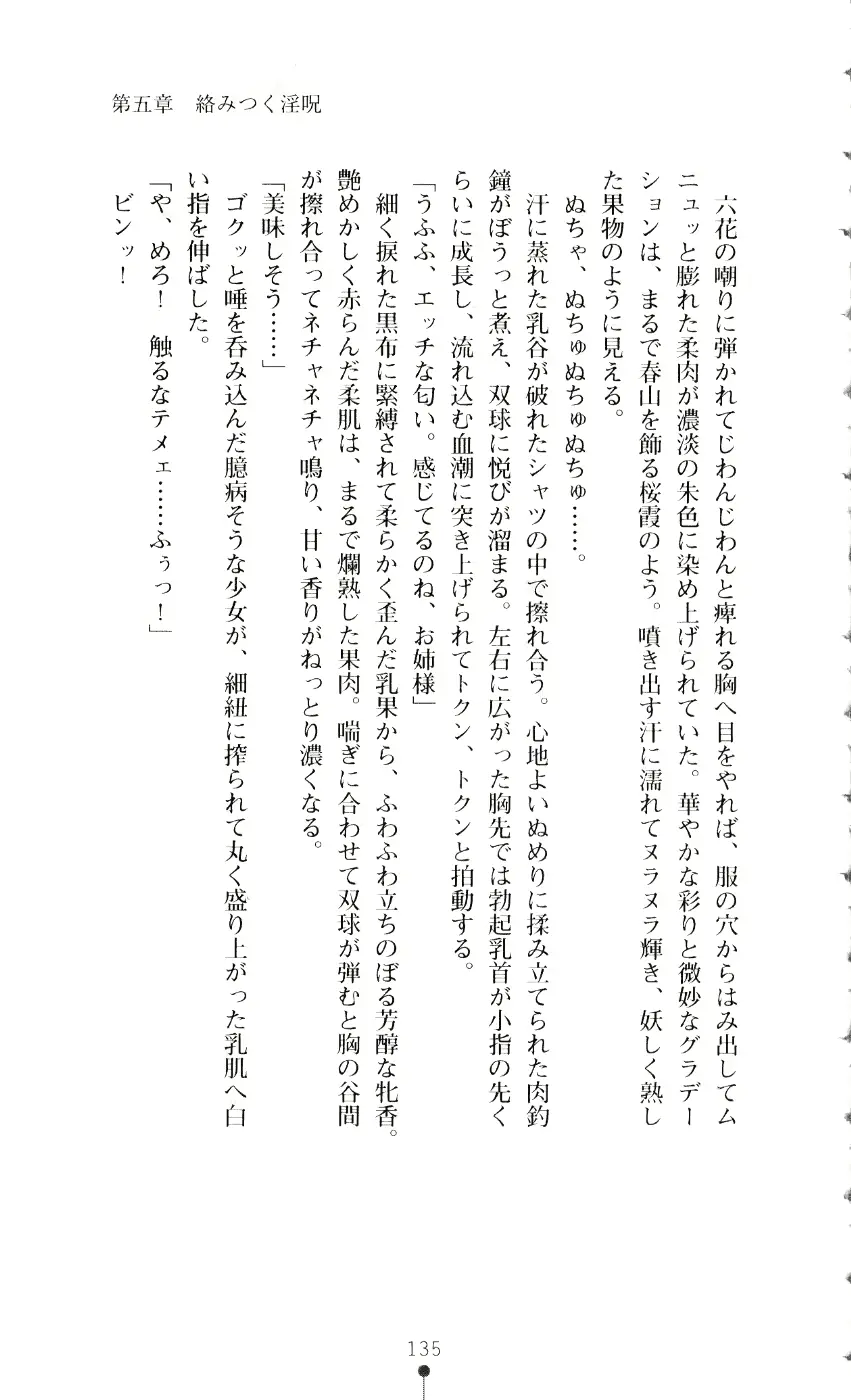 第五章　絡みつく淫呪
六花の嘲りに弾かれてじわんじわんと痺れる胸へ目をやれば、服の穴からはみ出してム
ニュッと膨れた柔肉が濃淡の朱色に染め上げられていた。華やかな彩りと微妙なグラデー
ションは、まるで春山を飾る桜霞のよう。噴き出す汗に濡れてヌラヌラ輝き、妖しく熟し
た果物のように見える。
ぬちゃ、ぬちゅぬちゅぬちゅ……。
汗に蒸れた乳谷が破れたシャツの中で擦れ合う。心地よいぬめりに揉み立てられた肉釣
鐘がぼうっと煮え、双球に悦びが溜まる。左右に広がった胸先では勃起乳首が小指の先く
らいに成長し、流れ込む血潮に突き上げられてトクン、トクンと拍動する。
「うふふ、エッチな匂い。感じてるのね、お姉様」
細く捩れた黒布に緊縛されて柔らかく歪んだ乳果から、ふわふわ立ちのぼる芳醇な牝香。
艶めかしく赤らんだ柔肌は、まるで爛熟した果肉。喘ぎに合わせて双球が弾むと胸の谷間
が擦れ合ってネチャネチャ鳴り、甘い香りがねっとり濃くなる。
「美味しそう……」
ゴクッと唾を呑み込んだ臆病そうな少女が、細紐に搾られて丸く盛り上がった乳肌へ白
い指を伸ばした。
「や、めろ！　触るなテメェ……ふぅっ！」
ビンッ！
135